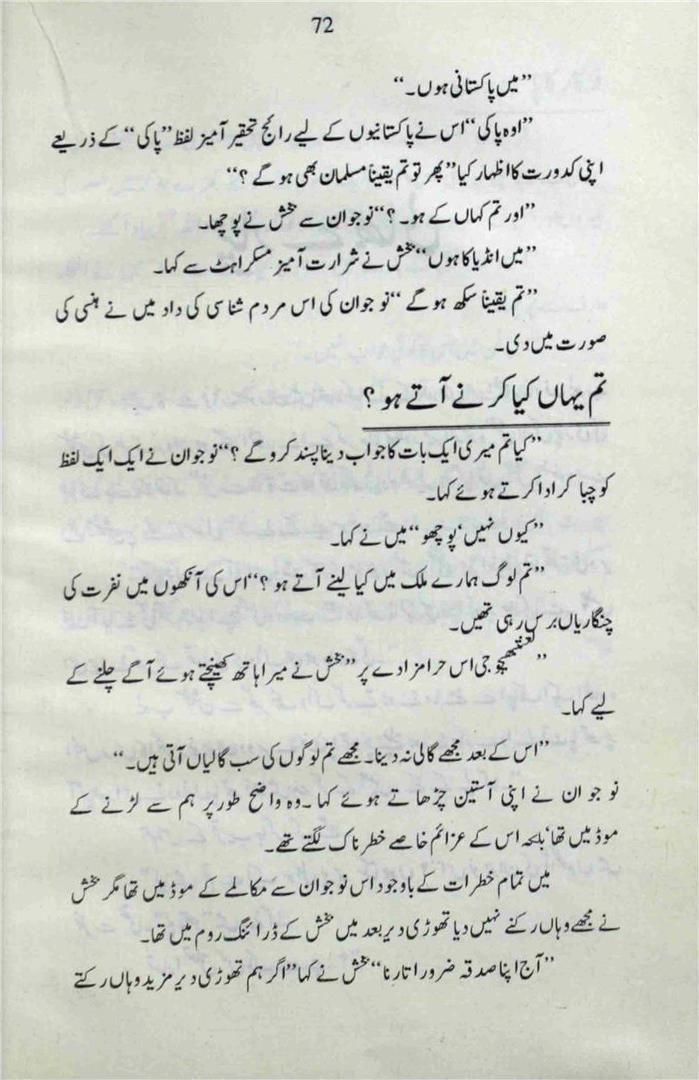 72
”میں پاکستانی ہوں۔“
”اوہ پاکی“ اس نے پاکستانیوں کے لیے رائج تحقیر آمیز لفظ ”پاکی“ کے ذریعے
اپنی کدورت کا اظہار کیا ”پھر تو تم یقیناً مسلمان بھی ہو گے ؟“
”اور تم کہاں کے ہو۔ ؟“ نوجوان سے بخش نے پوچھا۔
”میں انڈیا کا ہوں“ بخش نے شرارت آمیز مسکراہٹ سے کہا۔
”تم یقیناً سکھ ہو گے “ نوجوان کی اس مردم شناسی کی داد میں نے ہنسی کی
صورت میں دی۔
تم یہاں کیا کرنے آتے ہو ؟
”کیا تم میری ایک بات کا جواب دینا پسند کرو گے ؟“ نوجوان نے ایک ایک لفظ
کو چبا کر ادا کرتے ہوئے کہا۔
”کیوں نہیں‘ پوچھو“ میں نے کہا۔
”تم لوگ ہمارے ملک میں کیا لینے آتے ہو ؟“ اس کی آنکھوں میں نفرت کی
چنگاریاں برس رہی تھیں۔
”لعنت بھیجو جی اس حرامزادے پر“ بخش نے میرا ہاتھ کھینچتے ہوئے آگے چلنے کے
لیے کہا۔
”اس کے بعد مجھے گالی نہ دینا۔ مجھے تم لوگوں کی سب گالیاں آتی ہیں۔“
نوجوان نے اپنی آستین چڑھاتے ہوئے کہا۔ وہ واضح طور پر ہم سے لڑنے کے
موڈ میں تھا‘ بلکہ اس کے عزائم خاصے خطرناک لگتے تھے۔
میں تمام خطرات کے باوجود اس نوجوان سے مکالمے کے موڈ میں تھا مگر بخش
نے مجھے وہاں رکنے نہیں دیا تھوڑی دیر بعد میں بخش کے ڈرائنگ روم میں تھا۔
”آج اپنا صدقہ ضرور اتارنا“ بخش نے کہا ”اگر ہم تھوڑی دیر مزید وہاں رکتے